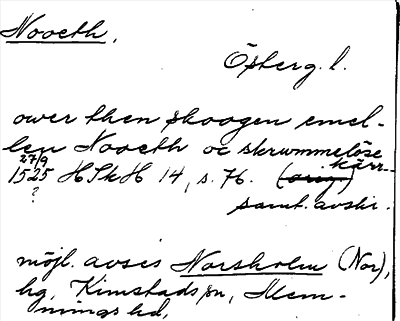 Nooeth.
Österg. l.
ower then skoogen emel-
len Nooeth oc skrummelöse
kärr
27/9
1525 HSkH 14, s. 76. (orig.)
?
samt. avskr.
möjl. avses Norsholm (Nor),
hg, Kimstads sn, Mem-
mings hd,